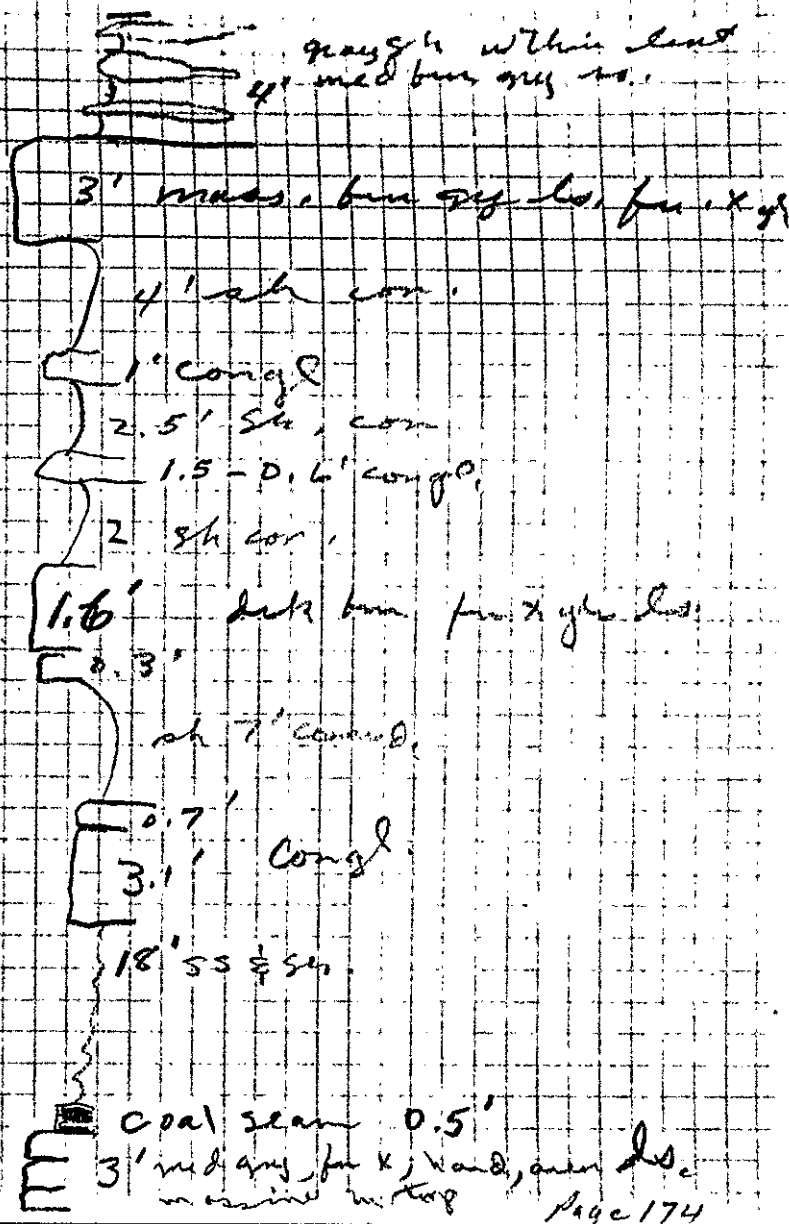 gray sh within last
4' med brn gry ls.
3' mass. brn gy ls. fn. x
4' sh cov.
1' Congl
2.5' Sh, cov
1.5 - 0.6' congl.
2 sh cov.
1.6' drk brn fn x ls.
0.3'
sh 7' covered.
0.7'
3.1' Congl.
18' ss & sh.
coal seam 0.5'
3' med gry, fn x, hard, ls.
massive in top
Page 174